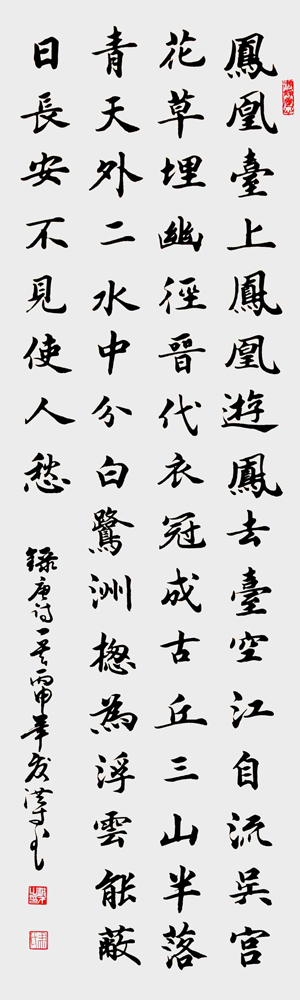 鳳凰臺上鳳凰遊鳳去臺空江自流吳宮
花草埋幽徑晉代衣冠成古丘三山半落
青天外二水中分白鷺洲揔為浮雲能蔽
日長安不見使人愁
錄唐诗一首丙申年